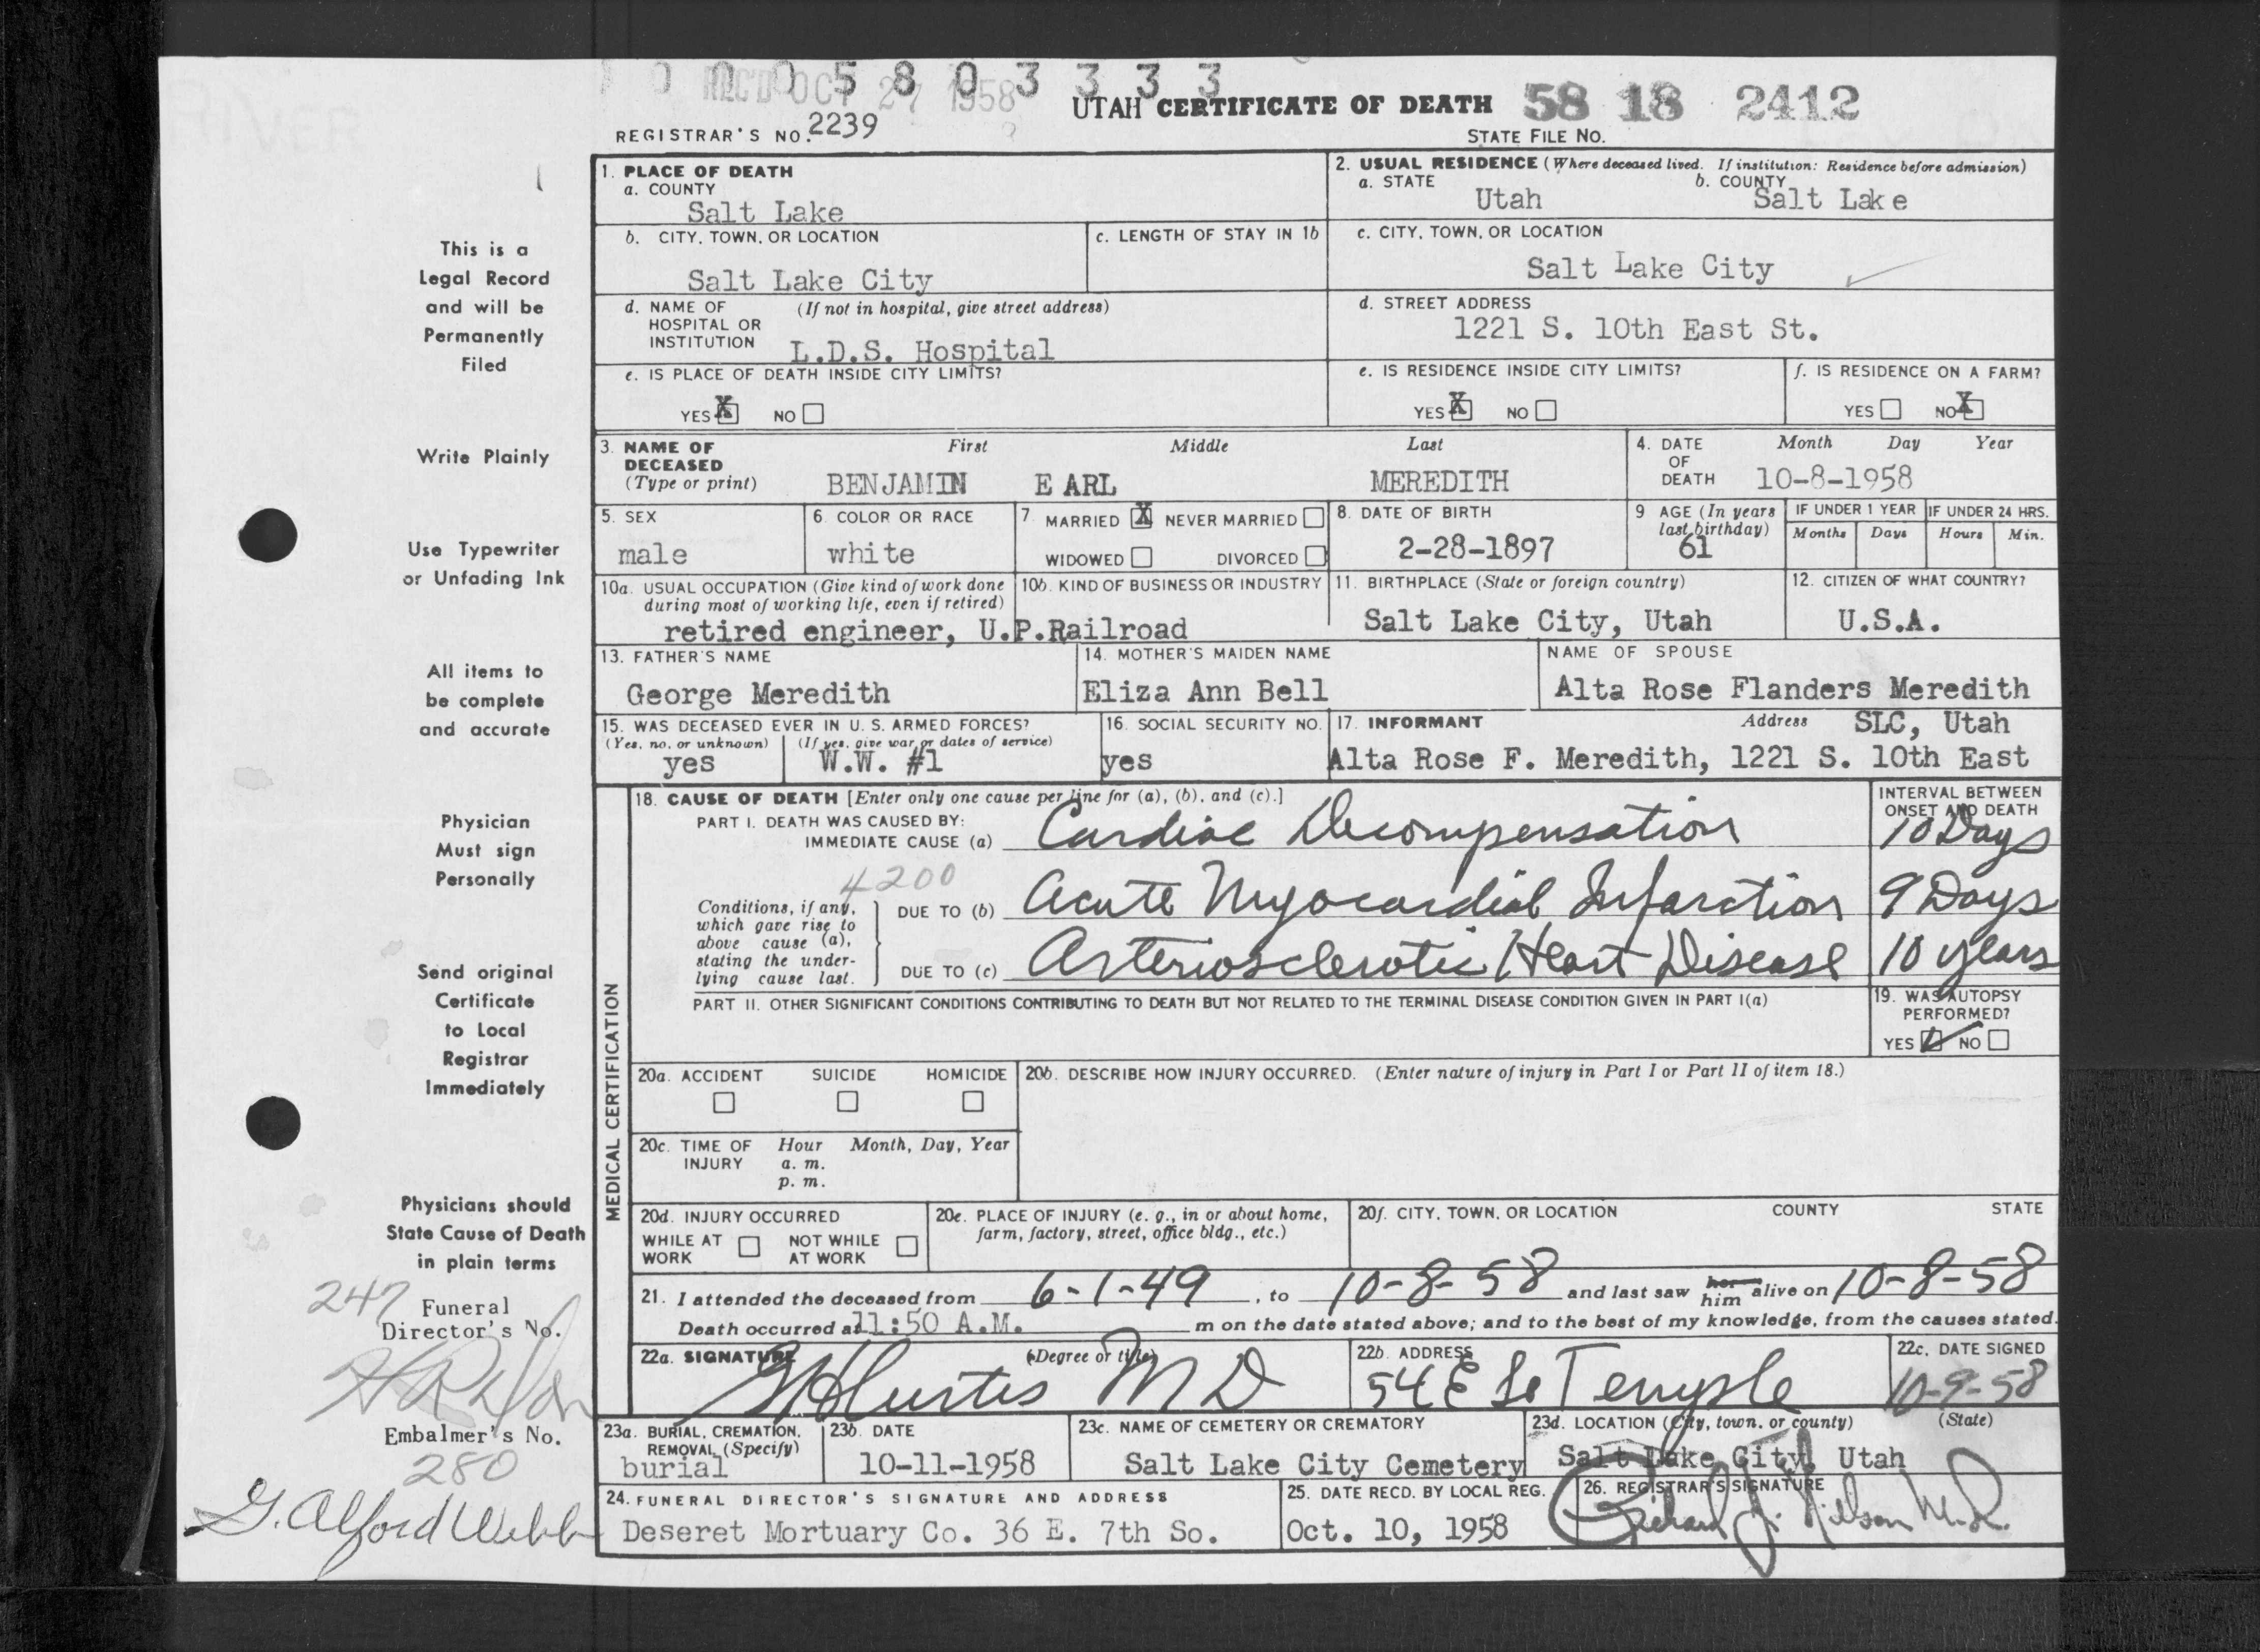 0 0 0 5 8 0 3 3 3 3
REC'D OCT 27 1958
UTAH CERTIFICATE OF DEATH 58 18 2412
REGISTRAR'S NO. 2239
STATE FILE NO.
1. PLACE OF DEATH
a. COUNTY
Salt Lake
2. USUAL RESIDENCE (Where deceased lived. If institution: Residence before admission)
a. STATE b. COUNTY
Utah Salt Lake
b. CITY, TOWN, OR LOCATION
Salt Lake City
c. LENGTH OF STAY IN 1b
c. CITY, TOWN, OR LOCATION
Salt Lake City
d. NAME OF (If not in hospital, give street address)
HOSPITAL OR
INSTITUTION L.D.S. Hospital
d. STREET ADDRESS
1221 S. 10th East St.
e. IS PLACE OF DEATH INSIDE CITY LIMITS?
YES X NO
e. IS RESIDENCE INSIDE CITY LIMITS?
YES X NO
f. IS RESIDENCE ON A FARM?
YES NO X
3. NAME OF First Middle Last
DECEASED
(Type or print) BENJAMIN EARL MEREDITH
4. DATE Month Day Year
OF
DEATH 10-8-1958
5. SEX
male
6. COLOR OR RACE
white
7. MARRIED X NEVER MARRIED
WIDOWED DIVORCED
8. DATE OF BIRTH
2-28-1897
9 AGE (In years
last birthday)
61
IF UNDER 1 YEAR IF UNDER 24 HRS.
Months Days Hours Min.
10a. USUAL OCCUPATION (Give kind of work done
during most of working life, even if retired)
10b. KIND OF BUSINESS OR INDUSTRY
retired engineer, U.P.Railroad
11. BIRTHPLACE (State or foreign country)
Salt Lake City, Utah
12. CITIZEN OF WHAT COUNTRY?
U.S.A.
13. FATHER'S NAME
George Meredith
14. MOTHER'S MAIDEN NAME
Eliza Ann Bell
NAME OF SPOUSE
Alta Rose Flanders Meredith
15. WAS DECEASED EVER IN U. S. ARMED FORCES?
(Yes, no, or unknown) (If yes, give war or dates of service)
yes W.W. #1
16. SOCIAL SECURITY NO.
yes
17. INFORMANT Address SLC, Utah
Alta Rose F. Meredith, 1221 S. 10th East
MEDICAL CERTIFICATION
18. CAUSE OF DEATH [Enter only one cause per line for (a), (b), and (c).]
PART I. DEATH WAS CAUSED BY:
IMMEDIATE CAUSE (a) Cardiac Decompensation
INTERVAL BETWEEN
ONSET AND DEATH
10 Days
4200
Conditions, if any,
which gave rise to
above cause (a),
stating the under-
lying cause last.
DUE TO (b) Acute Myocardial Infarction 9 Days
DUE TO (c) Arteriosclerotic Heart Disease 10 years
PART II. OTHER SIGNIFICANT CONDITIONS CONTRIBUTING TO DEATH BUT NOT RELATED TO THE TERMINAL DISEASE CONDITION GIVEN IN PART I(a)
19. WAS AUTOPSY
PERFORMED?
YES ✓ NO
20a. ACCIDENT SUICIDE HOMICIDE
20b. DESCRIBE HOW INJURY OCCURRED. (Enter nature of injury in Part I or Part II of item 18.)
20c. TIME OF Hour Month, Day, Year
INJURY a. m.
p. m.
20d. INJURY OCCURRED
WHILE AT NOT WHILE
WORK AT WORK
20e. PLACE OF INJURY (e. g., in or about home,
farm, factory, street, office bldg., etc.)
20f. CITY, TOWN, OR LOCATION COUNTY STATE
21. I attended the deceased from 6-1-49, to 10-8-58 and last saw her him alive on 10-8-58
Death occurred at 11:50 A.M. m on the date stated above; and to the best of my knowledge, from the causes stated.
22a. SIGNATURE (Degree or title)
M D
22b. ADDRESS
54 E So Temple
22c. DATE SIGNED
10-9-58
23a. BURIAL, CREMATION,
REMOVAL (Specify)
burial
23b. DATE
10-11-1958
23c. NAME OF CEMETERY OR CREMATORY
Salt Lake City Cemetery
23d. LOCATION (City, town, or county) (State)
Salt Lake City, Utah
24. FUNERAL DIRECTOR'S SIGNATURE AND ADDRESS
Deseret Mortuary Co. 36 E. 7th So.
25. DATE RECD. BY LOCAL REG.
Oct. 10, 1958
26. REGISTRAR'S SIGNATURE
Richard J. Nilson M.D.
This is a
Legal Record
and will be
Permanently
Filed
Write Plainly
Use Typewriter
or Unfading Ink
All items to
be complete
and accurate
Physician
Must sign
Personally
Send original
Certificate
to Local
Registrar
Immediately
Physicians should
State Cause of Death
in plain terms
247
Funeral
Director's No.
Embalmer's No.
280
G. Alford Webb